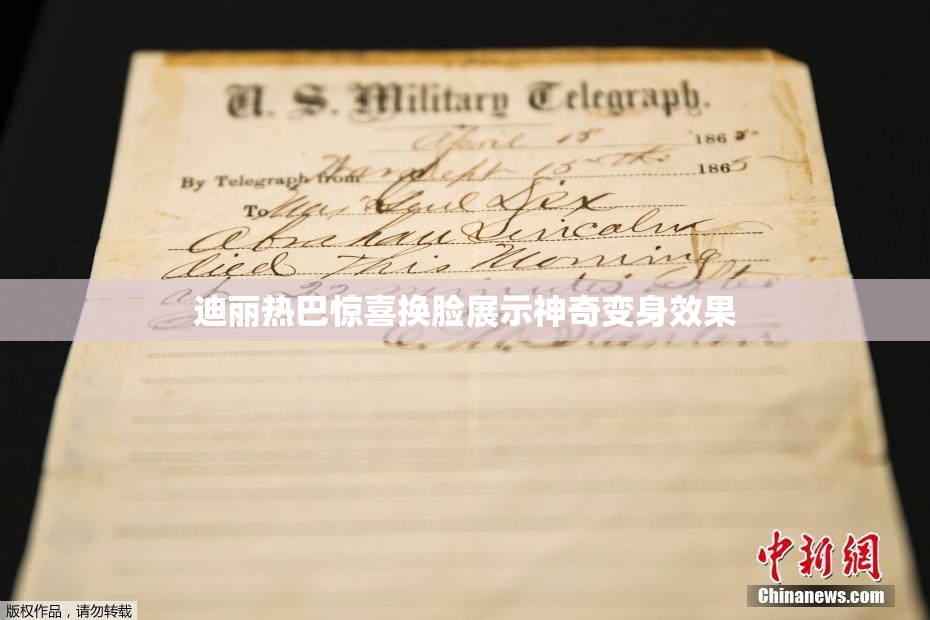 U. S. Military Telegraph.
April 15 1865
By Telegraph from War Dept 15th 1865
To Maj Genl Dix
Abraham Lincoln
died This Morning
at 22 minutes after
迪丽热巴惊喜换脸展示神奇变身效果
E. M. Stanton
中新网
Chinanews.com
版权作品，请勿转载